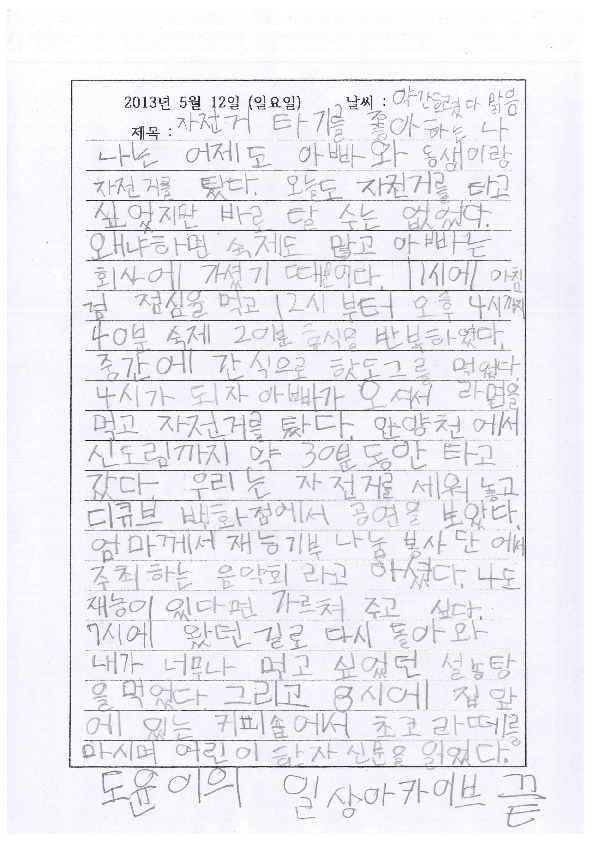 2013년 5월 12일 (일요일) 날씨 : 약간흐렸다 맑음
제목 : 자전거 타기를 좋아하는 나
나는 어제도 아빠와 동생이랑
자전거를 탔다. 오늘도 자전거를 타고
싶었지만 바로 탈 수는 없었다.
왜냐하면 숙제도 많고 아빠는
회사에 가셨기 때문이다. 11시에 아침
겸 점심을 먹고 12시 부터 오후 4시까지
40분 숙제 20분 휴식을 반복하였다.
중간에 간식으로 핫도그를 먹었다.
4시가 되자 아빠가 오셔서 라면을
먹고 자전거를 탔다. 안양천에서
신도림까지 약 30분동안 타고
갔다. 우리는 자전거를 세워 놓고
디큐브 백화점에서 공연을 보았다.
엄마께서 재능기부 나눔 봉사단에서
주최하는 음악회 라고 하셨다. 나도
재능이 있다면 가르쳐 주고 싶다.
7시에 왔던길로 다시 돌아와
내가 너무나 먹고 싶었던 설농탕
을 먹었다. 그리고 8시에 집앞
에 있는 커피숍에서 초코 라떼를
마시며 어린이 한자 신문을 읽었다.
도윤이의 일상아카이브 끝